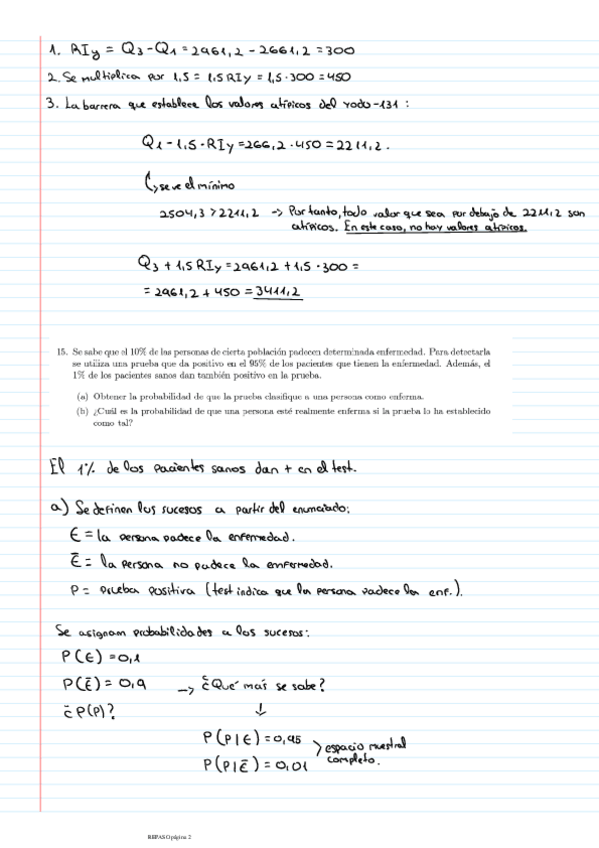 1. RIy = Q3-Q1 = 2961,2 - 2661,2 = 300
2. Se multiplica por 1,5 = 1,5 RIy = 1,5 · 300 = 450
3. La barrera que establece los valores atípicos del Yodo-131 :
Q1 - 1,5 · RIy = 266,2 · 450 = 2211,2 .
↳ se ve el mínimo
2504,3 > 2211,2 -> Por tanto, todo valor que sea por debajo de 2211,2 son
atípicos. En este caso, no hay valores atípicos.
Q3 + 1,5 RIy = 2961,2 + 1,5 · 300 =
= 2961,2 + 450 = 3411,2
15. Se sabe que el 10% de las personas de cierta población padecen determinada enfermedad. Para detectarla
se utiliza una prueba que da positivo en el 95% de los pacientes que tienen la enfermedad. Además, el
1% de los pacientes sanos dan también positivo en la prueba.
(a) Obtener la probabilidad de que la prueba clasifique a una persona como enferma.
(b) ¿Cuál es la probabilidad de que una persona esté realmente enferma si la prueba lo ha establecido
como tal?
El 1% de los pacientes sanos dan + en el test.
a) Se definen los sucesos a partir del enunciado:
E = la persona padece la enfermedad.
Ē = la persona no padece la enfermedad.
P = prueba positiva (test indica que la persona padece la enf.).
Se asignan probabilidades a los sucesos:
P(E) = 0,1
P(Ē) = 0,9 -> ¿Qué más se sabe?
¿P(P)? ↓
P(P|E) = 0,95 > espacio muestral
P(P|Ē) = 0,01 completo.
REPASO página 2